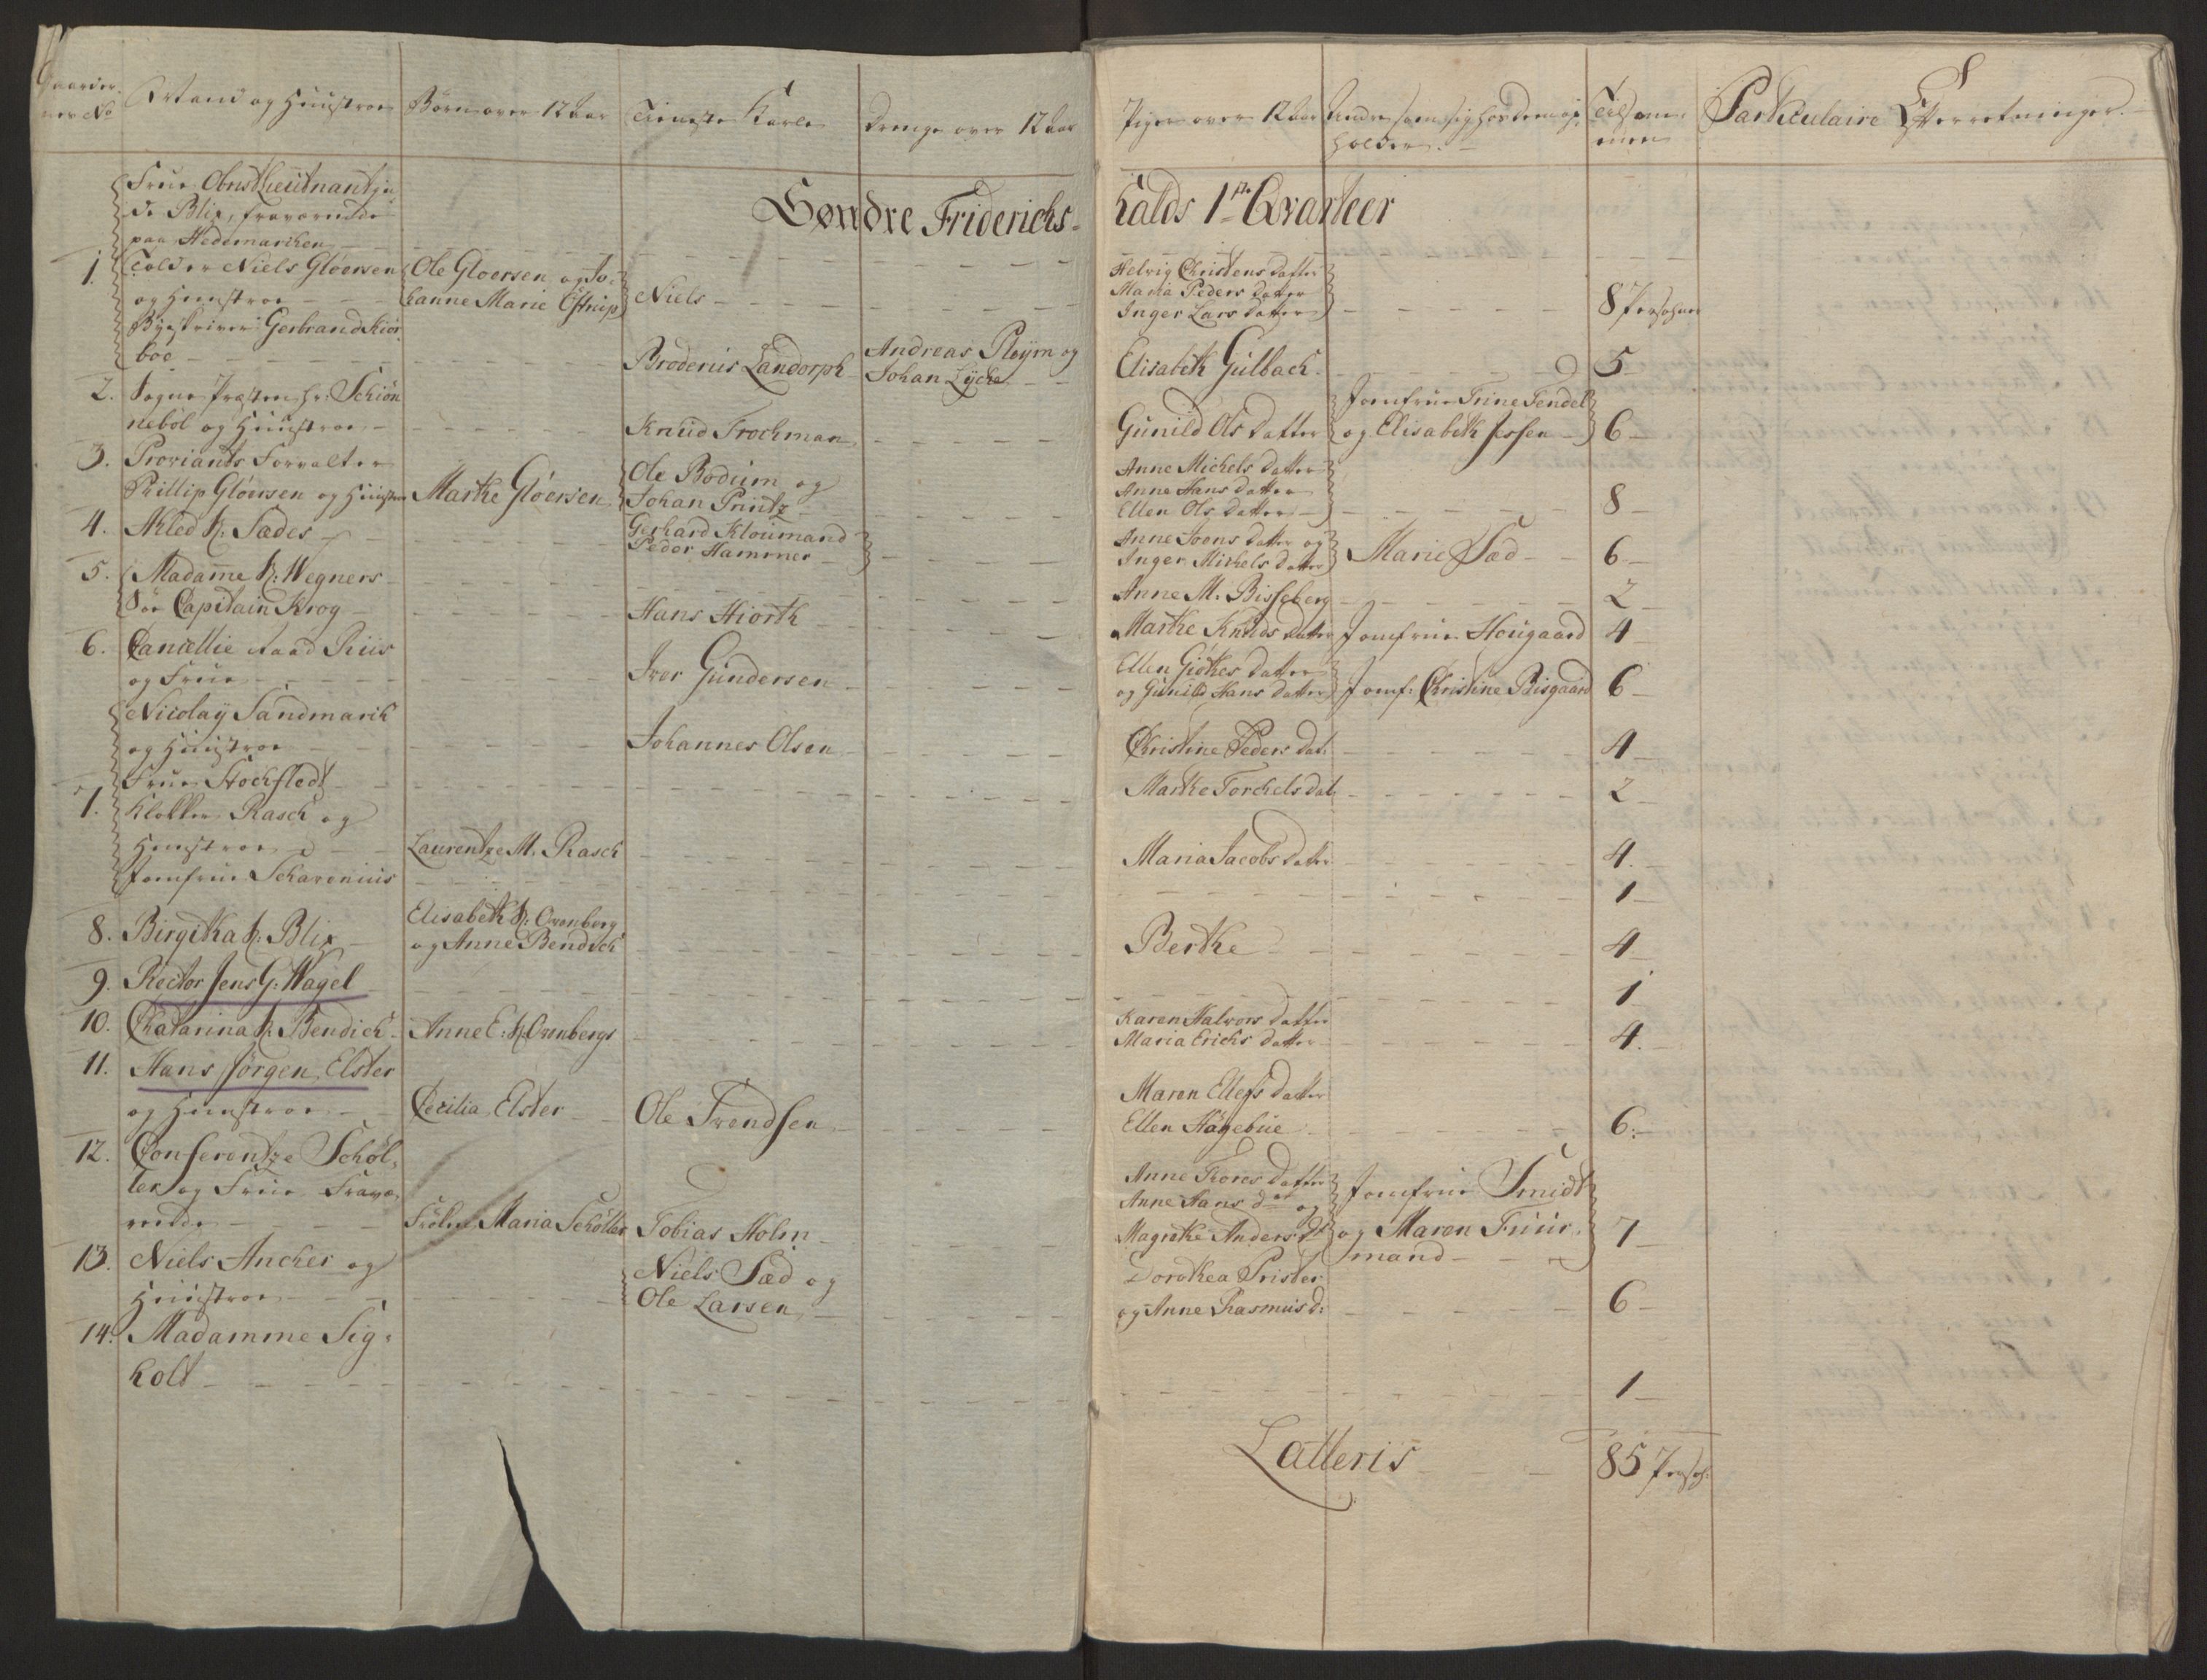 Gaarder-
nes No
Mand og Huustroe
Børn over 12 Aar
Tieneste Karle
Drenge over 12 Aar
Piger over 12 Aar
Andre som sig hos dem op-
holder.
Tilsam-
men
Particulaire Efterretninger.
Søndre Friderichs-
halds 1ste Qvarteer
Frue Obristlieutnantin
de Blix, fraværende
paa Hedemarchen
1. Tolder Niels Gløersen
og Huustroe
Ole Gloersen og Jo-
hanne Marie Østrup
Niels
Helvig Christens datter
Maria Peders datter
Inger Lars datter
8 Persohner
Byeskriver Gerbrand Kiør-
boe
Broderus Landorph
Andreas Pleym og
Johan Lyche
Elisabeth Gulbach
5
2. Sogne Præsten hr. Schiøn
nebøl og Huustroe
Knud Trochman
Gunild Ols datter
Jomfrue Trine Tendel
og Elisabeth Jessen
6
3. Proviants Forvalter
Phillip Gløersen og Huustroe
Marthe Gløersen
Ole Bodum og
Johan Printz
Anne Michels datter
Anne Hans datter
Ellen Ols datter
8
4. Mled Sl. Sædes
Gerhard Kloumand
Peder Hammer
Anne Joens datter og
Inger Michels datter
Marie Sæd
6
5. Madame Sl. Wegners
Anne M. Bisseberg
2
Søe Capitain Krog
Hans Hiorth
Marthe Knuds datter
Jomfrue Hougaard
4
6. Cancellie Raad Riis
og Frue
Iver Gundersen
Ellen Giøthes datter
og Gunild Hans datter
Jomf: Christine Bisgaard
6
Nicolay Sandmarch
og Huustroe
Johannes Olsen
Christine Peders dat:
4
Frue Stockfledt
Marthe Torchels dat
2
7. Klokker Rasch og
Huustroe
Laurentze M. Rasch
Maria Jacobs datter
4.
Jomfrue Schavenius
1
8. Birgitha Sl. Blix
Elisabeth Sl. Ovenberg
og Anne Bendich
Berthe
4
9. Rector Jens G. Wagel
1
10. Chatarina Sl. Bendich
Anne E. Sl. Ovenbergs
Karen Halvors datter
Maria Erichs datter
4.
11. Hans Jørgen Elster
og Huustroe
Cecilia Elster
Ole Trendsen
Maren Ellefs datter
Ellen Høgebue
6.
12. Conferentze Schøl-
ler og Frue Fravæ-
rende
Frølen Maria Schøller
Tobias Holm
Anne Thores datter
Anne Hans dr og
Magrethe Anders dr
Jomfrue Smidt
og Maren Fuur-
mand
7
13. Niels Ancher og
Huustroe
Niels Sæd og
Ole Larsen
Dorothea Prister
og Anne Rasmus d:
6
14. Madamme Sig-
holt
1
Latteris
85 Persoh: